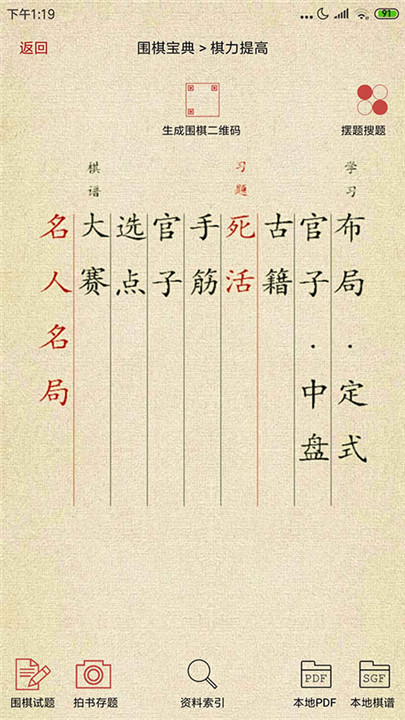 下午1:19
91
返回
围棋宝典 > 棋力提高
生成围棋二维码
摆题搜题
学习
布局·定式
官子·中盘
古籍
习题
死活
手筋
官子
选点
棋谱
大赛
名人名局
围棋试题
拍书存题
资料索引
PDF
本地PDF
SGF
本地棋谱